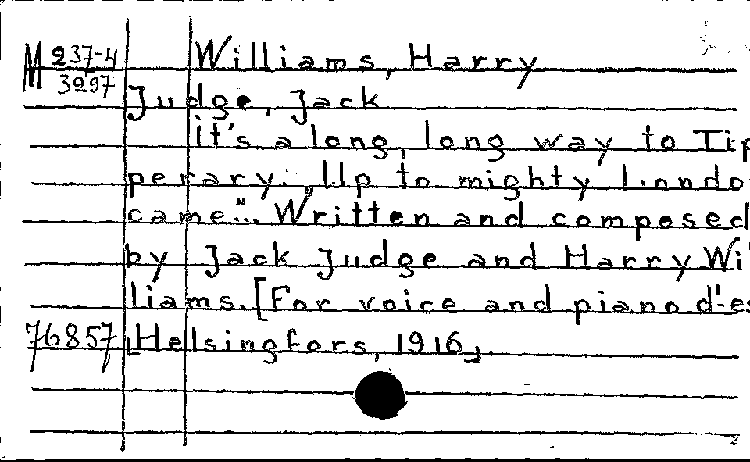 M 237-4 Williams, Harry
3297
Judge, Jack
it's a long, long way to Tip
perary. „Up to mighty Londo
came"... Written and composed
by Jack Judge and Harry Wil
liams. [For voice and piano d'-es
76857 [Helsingfors, 1916]